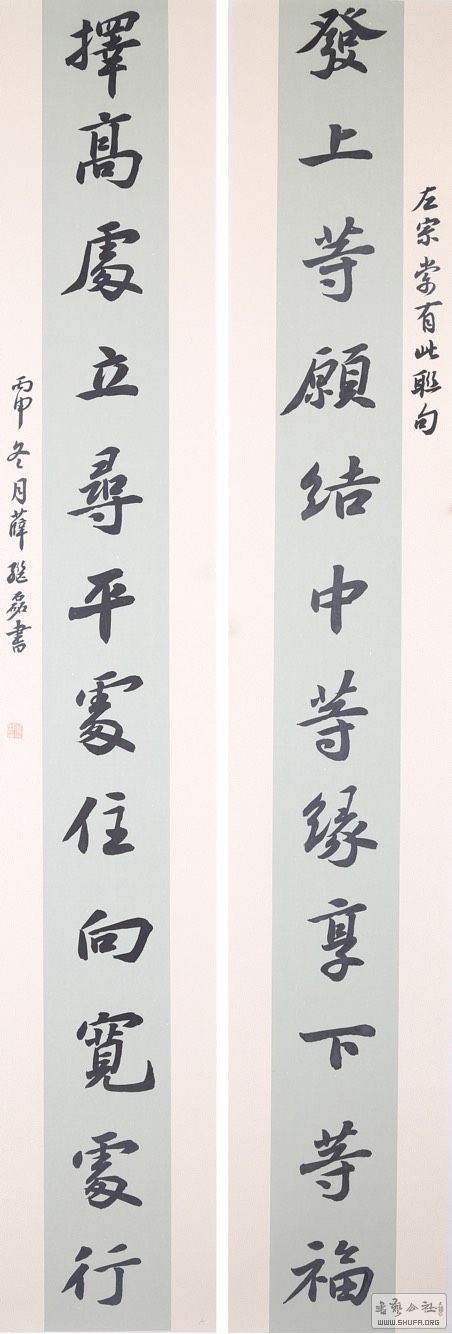 左宗棠有此联句
發上等願結中等緣享下等福
擇高處立尋平處住向寬處行
丙申冬月薛继磊書
WWW.SHUFA.ORG